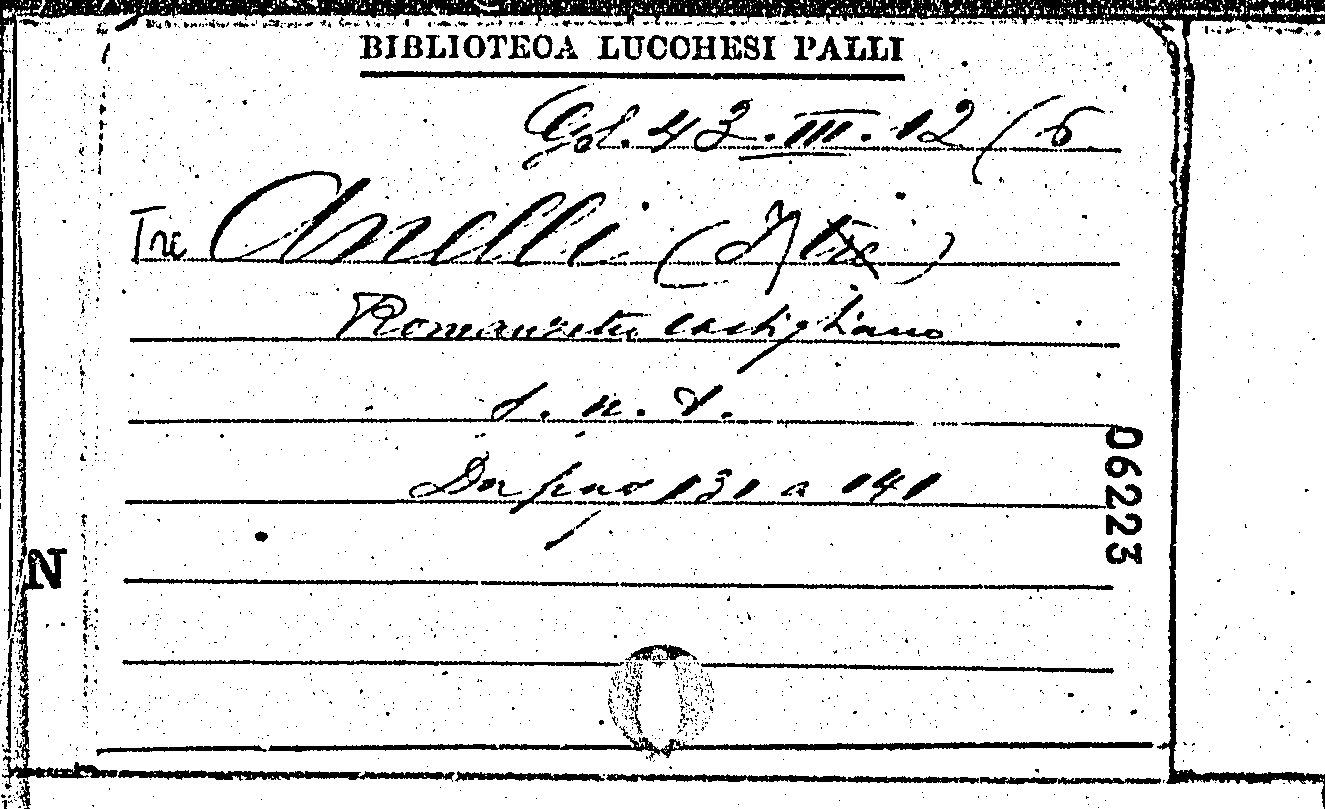 BIBLIOTECA LUCCHESI PALLI
Gd. 43. III. 12 (6
Tre Anelli (I tre)
Romanzetto castigliano
s. n. t.
Da pag 131 a 141
06223
N